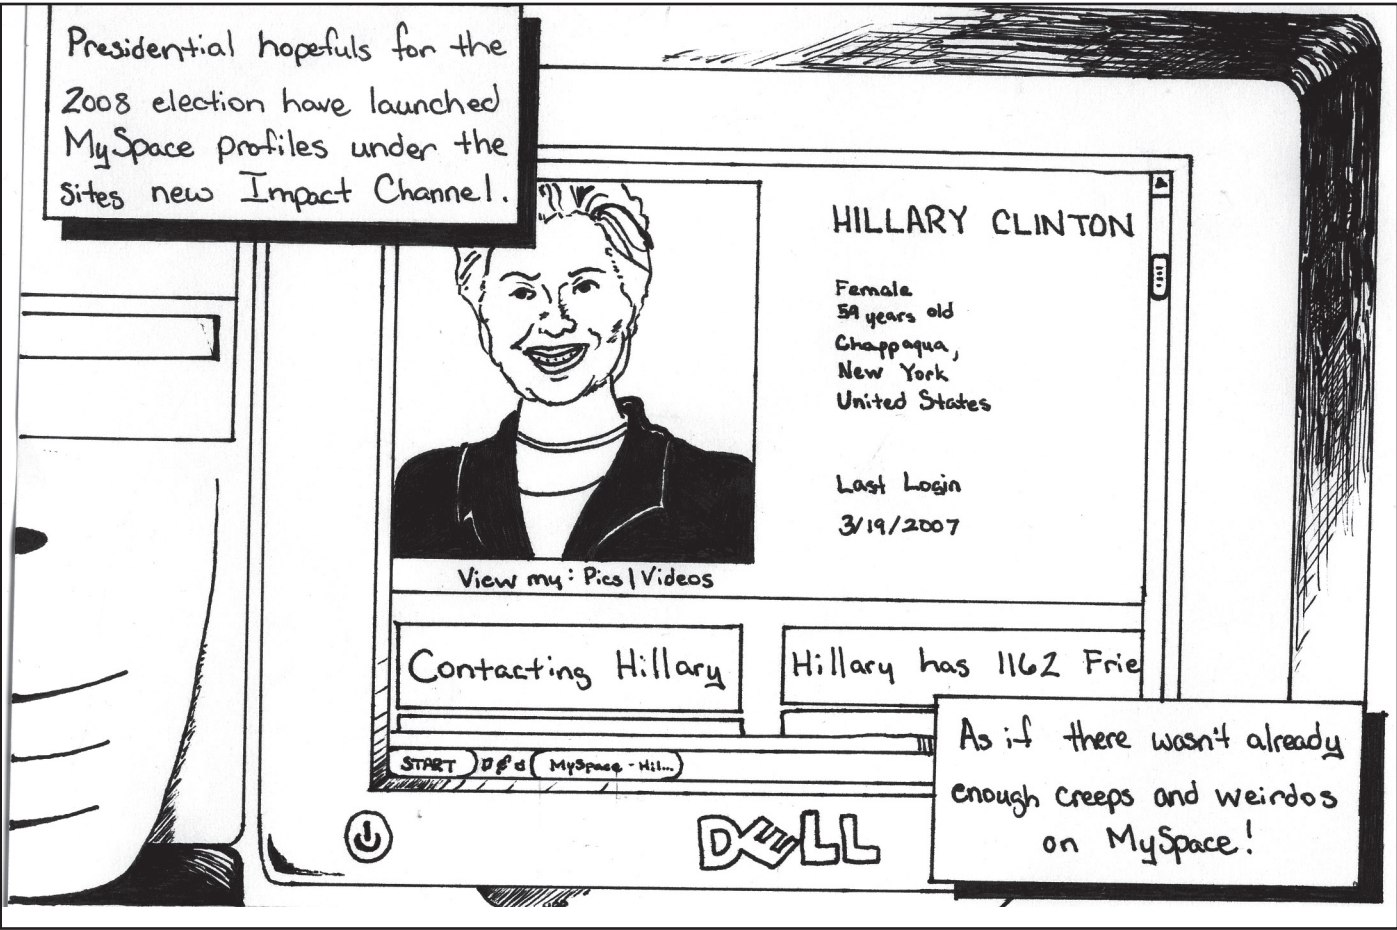 Presidential hopefuls for the
2008 election have launched
MySpace profiles under the
sites new Impact Channel.
HILLARY CLINTON
Female
59 years old
Chappaqua,
New York
United States
Last Login
3/19/2007
View my: Pics | Videos
Contacting Hillary
Hillary has 1162 Frie
START
MySpace - Hil...
DELL
As if there wasn't already
enough creeps and weirdos
on MySpace!